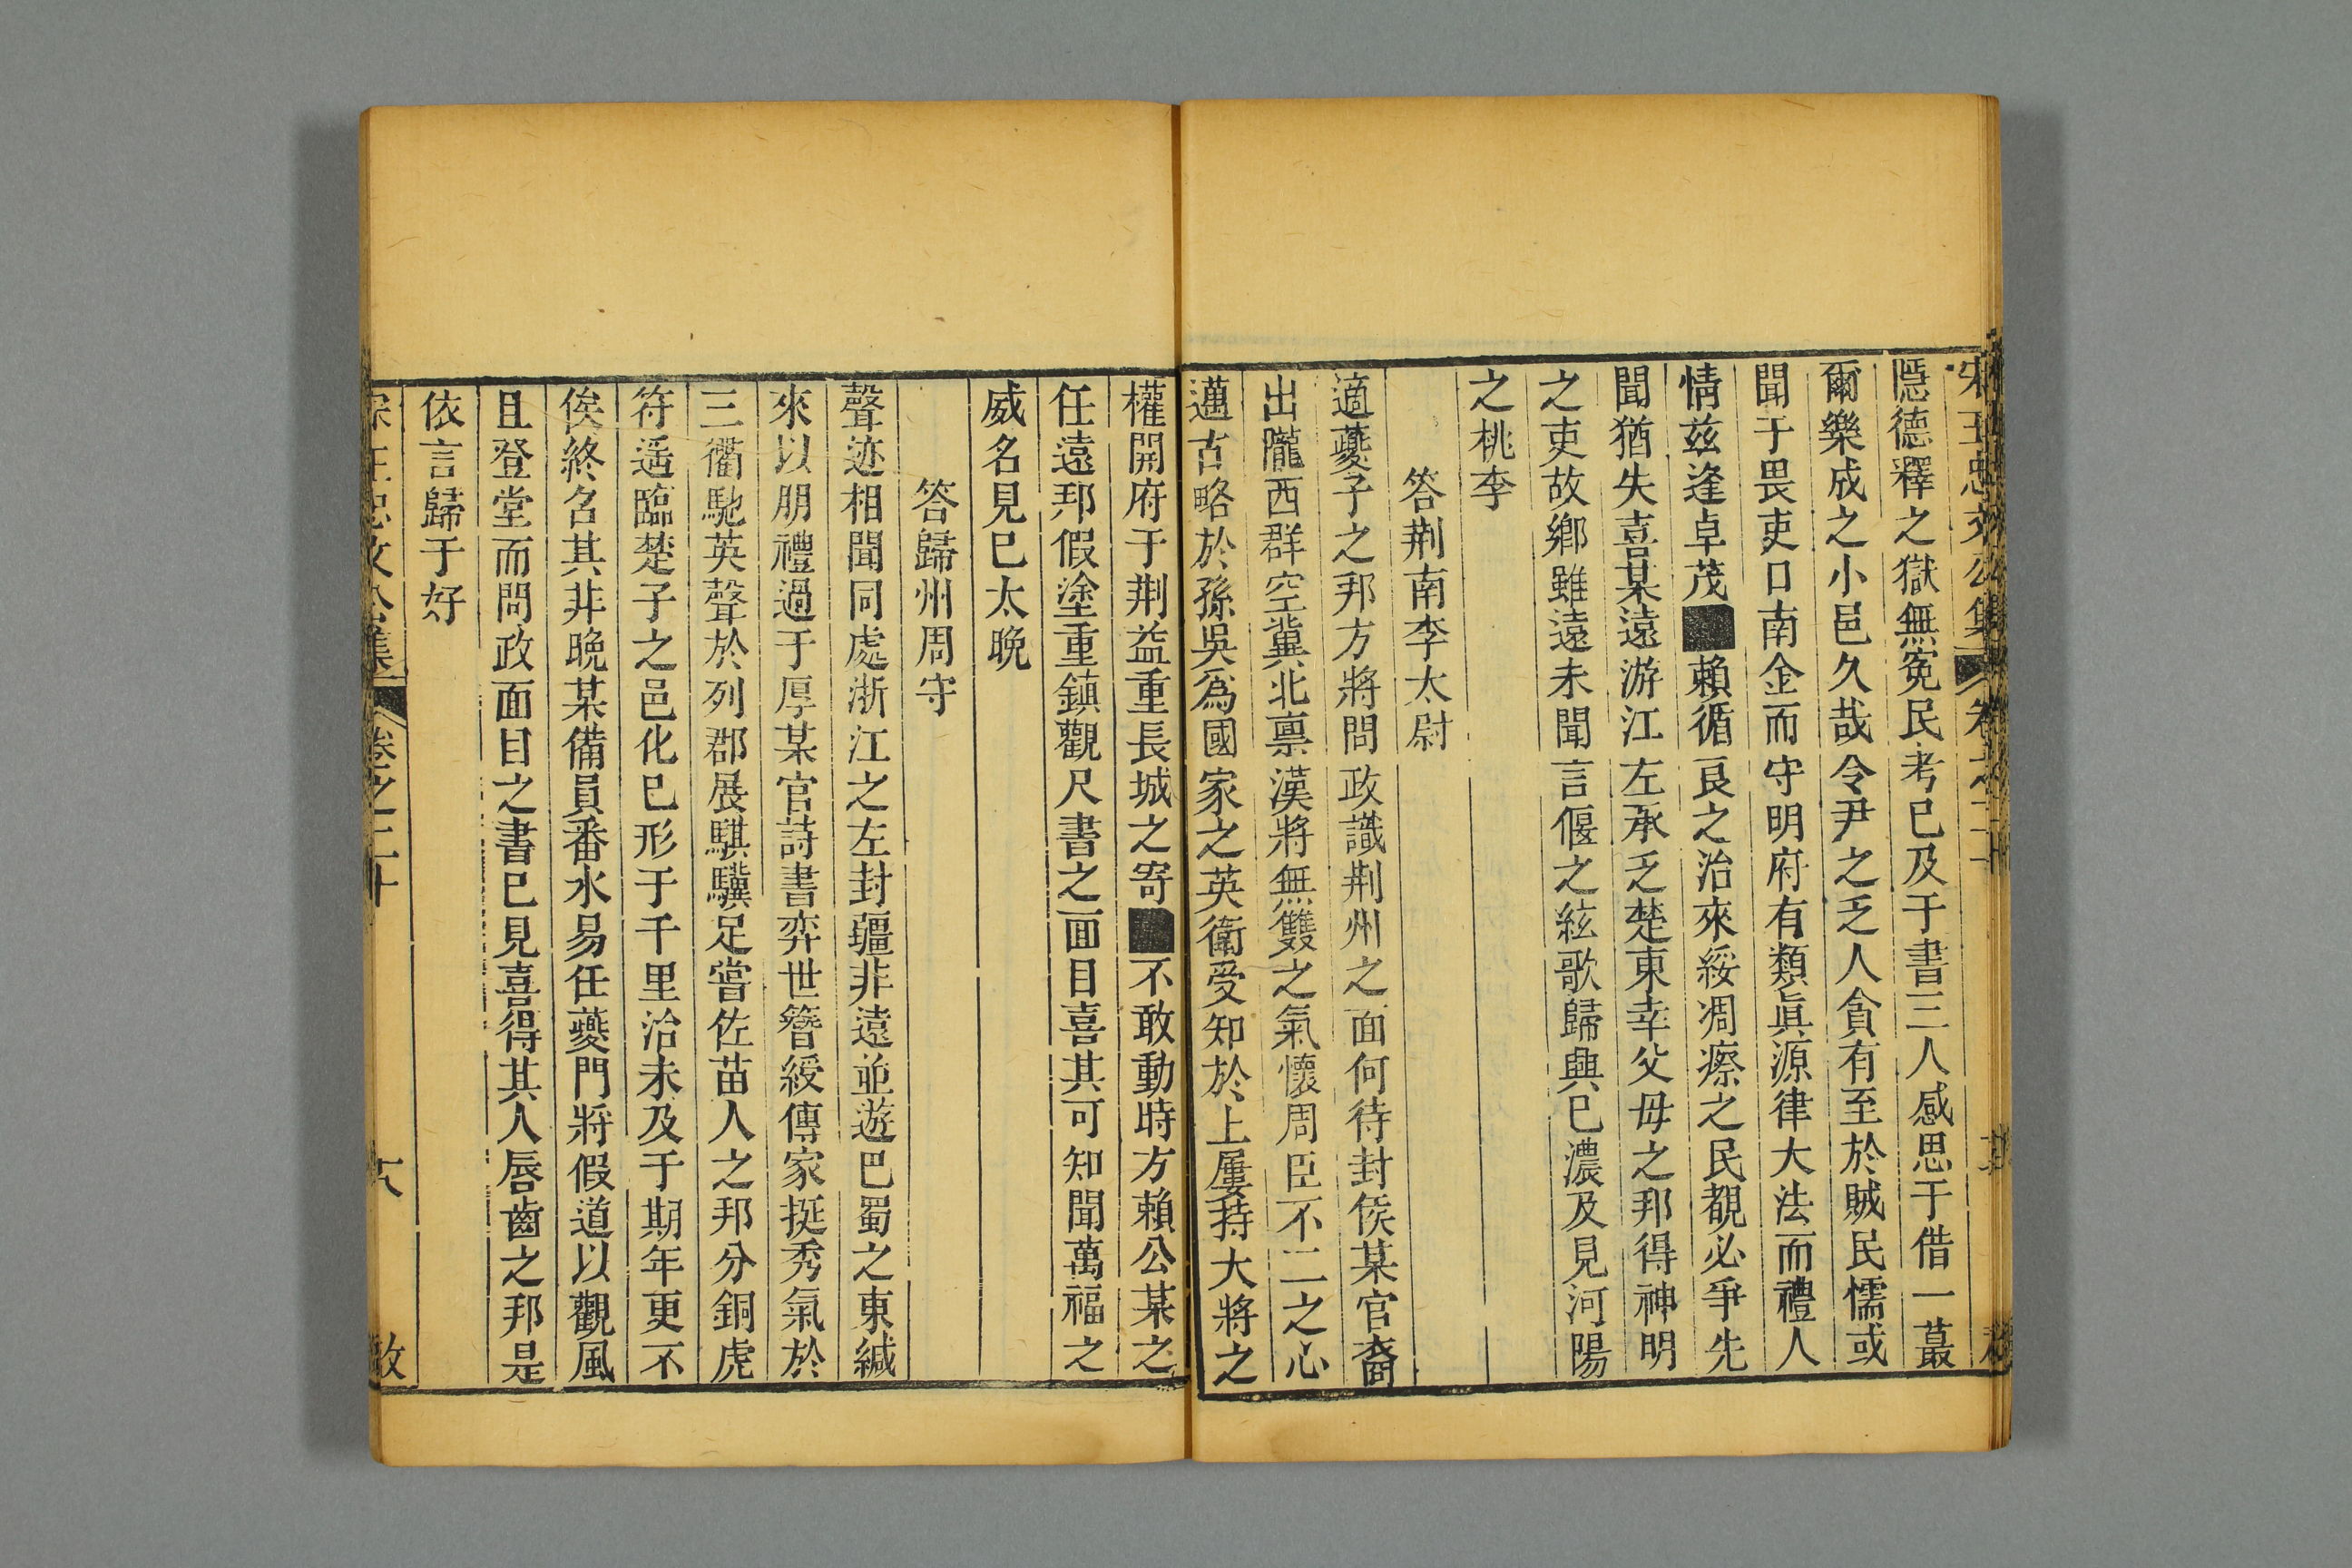 宋王忠文公集 卷之二十
隱德釋之獄無冤民考巳及于書三人感思于借一蕞
爾樂成之小邑久哉令尹之乏人貪有至於賊民懦或
聞于畏吏口南金而守明府有類眞源律大法而禮人
情兹逢卓茂■賴循良之治來綏凋瘵之民覩必爭先
聞猶失喜某遠游江左承乏楚東幸父母之邦得神明
之吏故鄉雖遠未聞言偃之絃歌歸興巳濃及見河陽
之桃李
答荆南李太尉
適夔子之邦方將問政識荆州之面何待封侯某官裔
出隴西群空冀北禀漢將無雙之氣懷周臣不二之心
邁古略於孫吳爲國家之英衛受知於上屢持大將之
權開府于荆益重長城之寄■不敢動時方賴公某之
任遠邦假塗重鎮觀尺書之面目喜其可知聞萬福之
威名見巳太晚
答歸州周守
聲迹相聞同處浙江之左封疆非遠並遊巴蜀之東緘
來以朋禮過于厚某官詩書弈世簪綬傳家挺秀氣於
三衢馳英聲於列郡展騏驥足嘗佐苗人之邦分銅虎
符遥臨楚子之邑化巳形于千里治未及于期年更不
俟終名其非晚某備員番水易任夔門將假道以觀風
且登堂而問政面目之書巳見喜得其人唇齒之邦是
依言歸于好
宋王忠文公集 卷之二十